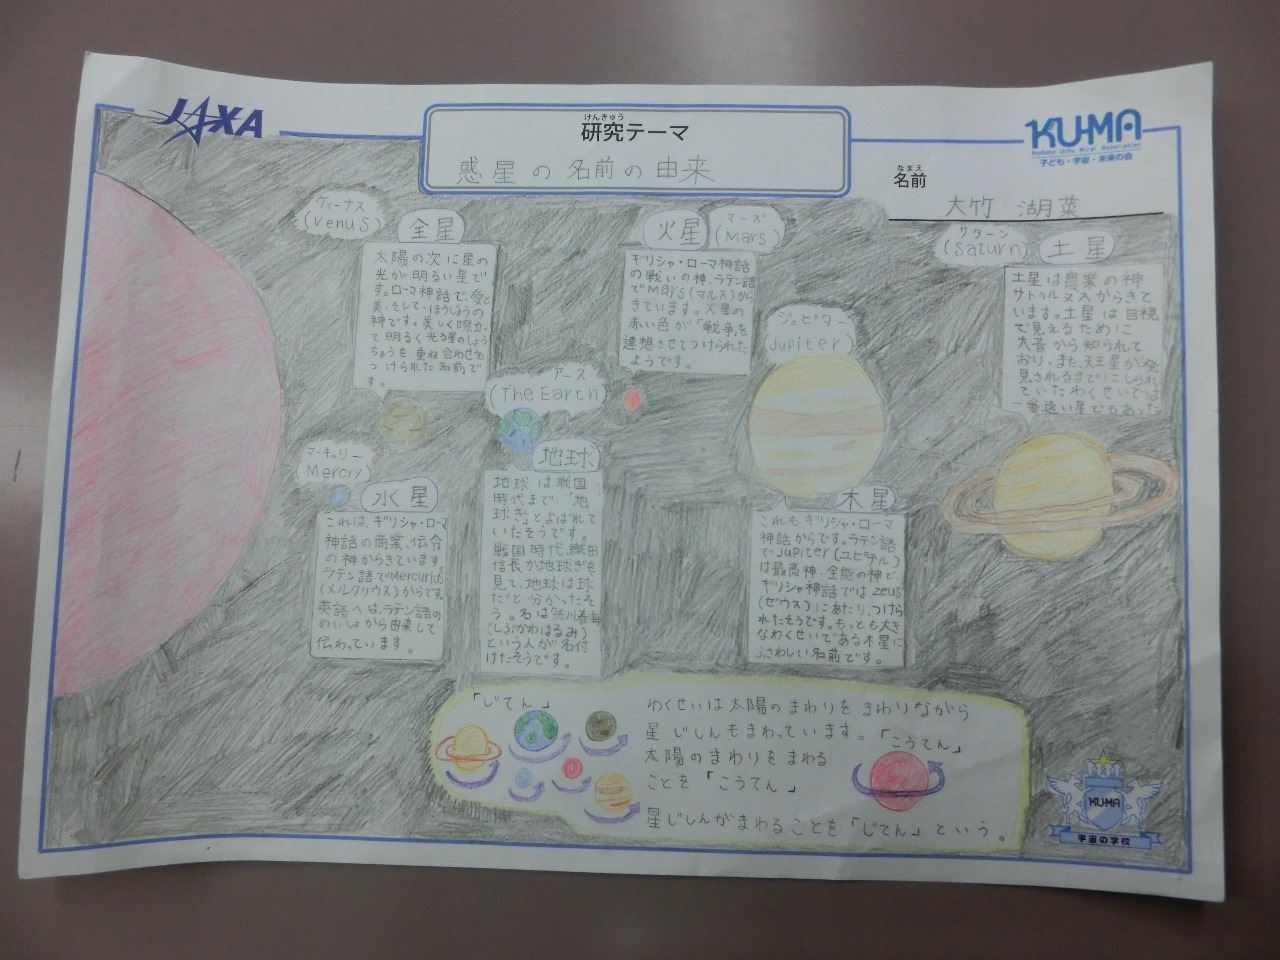 JAXA
けんきゅう
研究テーマ
惑星の名前の由来
KU-MA
Kodomo Uchu Mirai Association
子ども・宇宙・未来の会
なまえ
名前
大竹 湖菜
ヴィーナス
(Venus)
金星
太陽の次に星の
光が明るい星で
す。ローマ神話で、愛と
美、そして、ほうじょうの
神です。美しく際立っ
て明るく光る星のしょう
ちょうを重ね合わせて
つけられた名前で
す。
マーキュリー
(Mercry)
水星
これは、ギリシャ・ローマ
神話の商業、伝令
の神からきています。
ラテン語でMercurius
(メルクリウス)からです。
英語へは、ラテン語の
めいしょから由来して
伝わっています。
アース
(The Earth)
地球
地球は戦国
時代まで「地
球ぎ」とよばれて
いたそうです。
戦国時代、織田
信長が地球ぎを
見て、地球は球
だと分かったそ
う。名は渋川春海
(しぶかわはるみ)
という人が名付
けたそうです。
火星
マーズ
(Mars)
ギリシャ・ローマ神話
の戦いの神、ラテン語
でMars(マルス)から
きています。火星の
赤い色が「戦争」を
連想させてつけられた
ようです。
ジュピター
(Jupiter)
木星
これもギリシャ・ローマ
神話からです。ラテン語
でJupiter(ユピテル)
は最高神、全能の神で、
ギリシャ神話ではzeus
(ゼウス)にあたり、つけら
れたそうです。もっとも大き
なわくせいである木星に
ふさわしい名前です。
サターン
(Saturn)
土星
土星は農業の神
サトゥルヌスからきて
います。土星は目視
で見えるために
大昔から知られて
おり、また、天王星が発
見されるまでにしられ
ていたわくせいでは
一番遠い星でもあった
「じてん」
わくせいは太陽のまわりをまわりながら
星じしんもまわっています。「こうてん」
太陽のまわりをまわる
ことを「こうてん」
星じしんがまわることを「じてん」という。
KU-MA
宇宙の学校